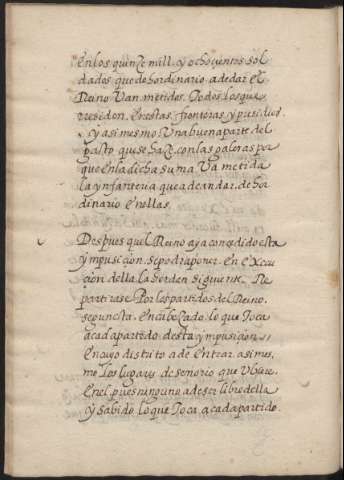 En los quinze mill. y ochoçientos sol
dados que de hordinario. a de dar el
Reino Van metidos. Todos los que
rresiden. En estas. fronteras y presidios.
y asimesmo. Una buena parte del
gasto que se haze. con las galeras por
que en la dicha suma Va metida
la ynfanteria que a de andar. de hor
dinario en ellas.
Despues quel Reino aya conçedido esta
ymposiçion. se podra poner. en Execu
cion della. la horden siguiente. Re
partirase Por los partidos del Reino.
segun esta. Encabeçado. lo que Toca
a cada partido. desta ymposiçion.
En cuyo distrito a de entrar. asimes.
mo. los lugares de señorio que Ubiere
En el. pues ninguno a de ser libre della
y sabido lo que Toca. a cada partido.